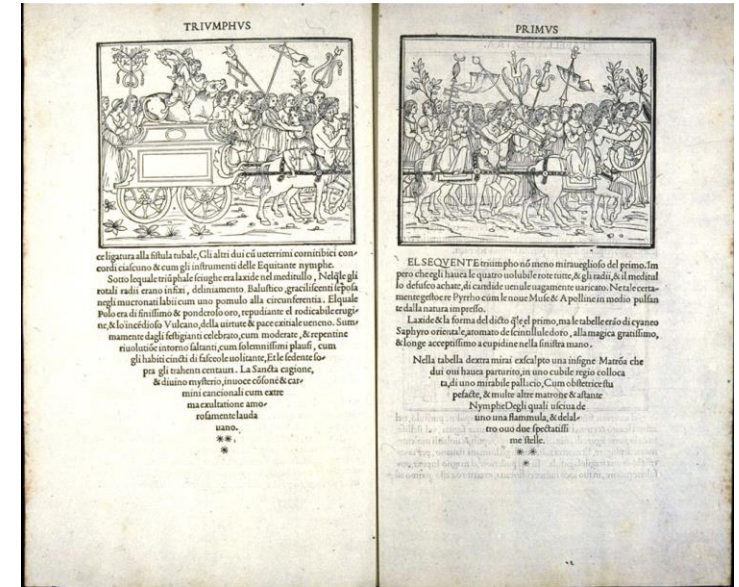 TRIVMPHVS
ce ligatura alla fistula tubale, Gli altri dui cū ueterrimi cornitibici con-
cordi ciascuno & cum gli instrumenti delle Equitante nymphe.
Sotto lequale triūphale seiughe era laxide nel meditullo, Nelqle gli
rotali radii erano infixi, deliniamento Balustico, graciliscenti seposa
negli mucronati labii cum uno pomulo alla circunferentia. Elquale
Polo era di finissimo & ponderoso oro, repudiante el rodicabile erugi-
ne, & lo incēdioso Vulcano, della uirtute & pace exitiale ueneno. Sum-
mamente dagli festigianti celebrato, cum moderate, & repentine
riuolutiōe intorno saltanti, cum solemnissimi plausi, cum
gli habiti cincti di fasceole uolitante, Et le sedente so-
pra gli trahenti centauri. La Sancta cagione,
& diuino mysterio, inuoce cōsone & car-
mini cancionali cum extre
ma exultatione amo-
rosamente lauda
uano.
PRIMVS
EL SEQVENTE triumpho nō meno miraueglioso del primo. Im
pero che egli hauea le quatro uolubile rote tutte, & gli radii, & il meditul
lo defusco achate, di candide uenule uagamente uaricato. Ne tale certa-
mente gestoe re Pyrrho cum le noue Muse & Apolline in medio pulsan
te dalla natura impresso.
Laxide & la forma del dicto qle el primo, ma le tabelle erāo di cyaneo
Saphyro orientale, atomato de scintillule doro, alla magica gratissimo,
& longe acceptissimo a cupidine nella sinistra mano.
Nella tabella dextra mirai exscalpto una insigne Matrōa che
dui oui hauea parturito, in uno cubile regio colloca
ta, di uno mirabile pallacio, Cum obstetrice stu
pefacte, & multe altre matrone & astante
Nymphe Degli quali usciua de
uno una flammula, & delal-
tro ouo due spectatissi
me stelle.